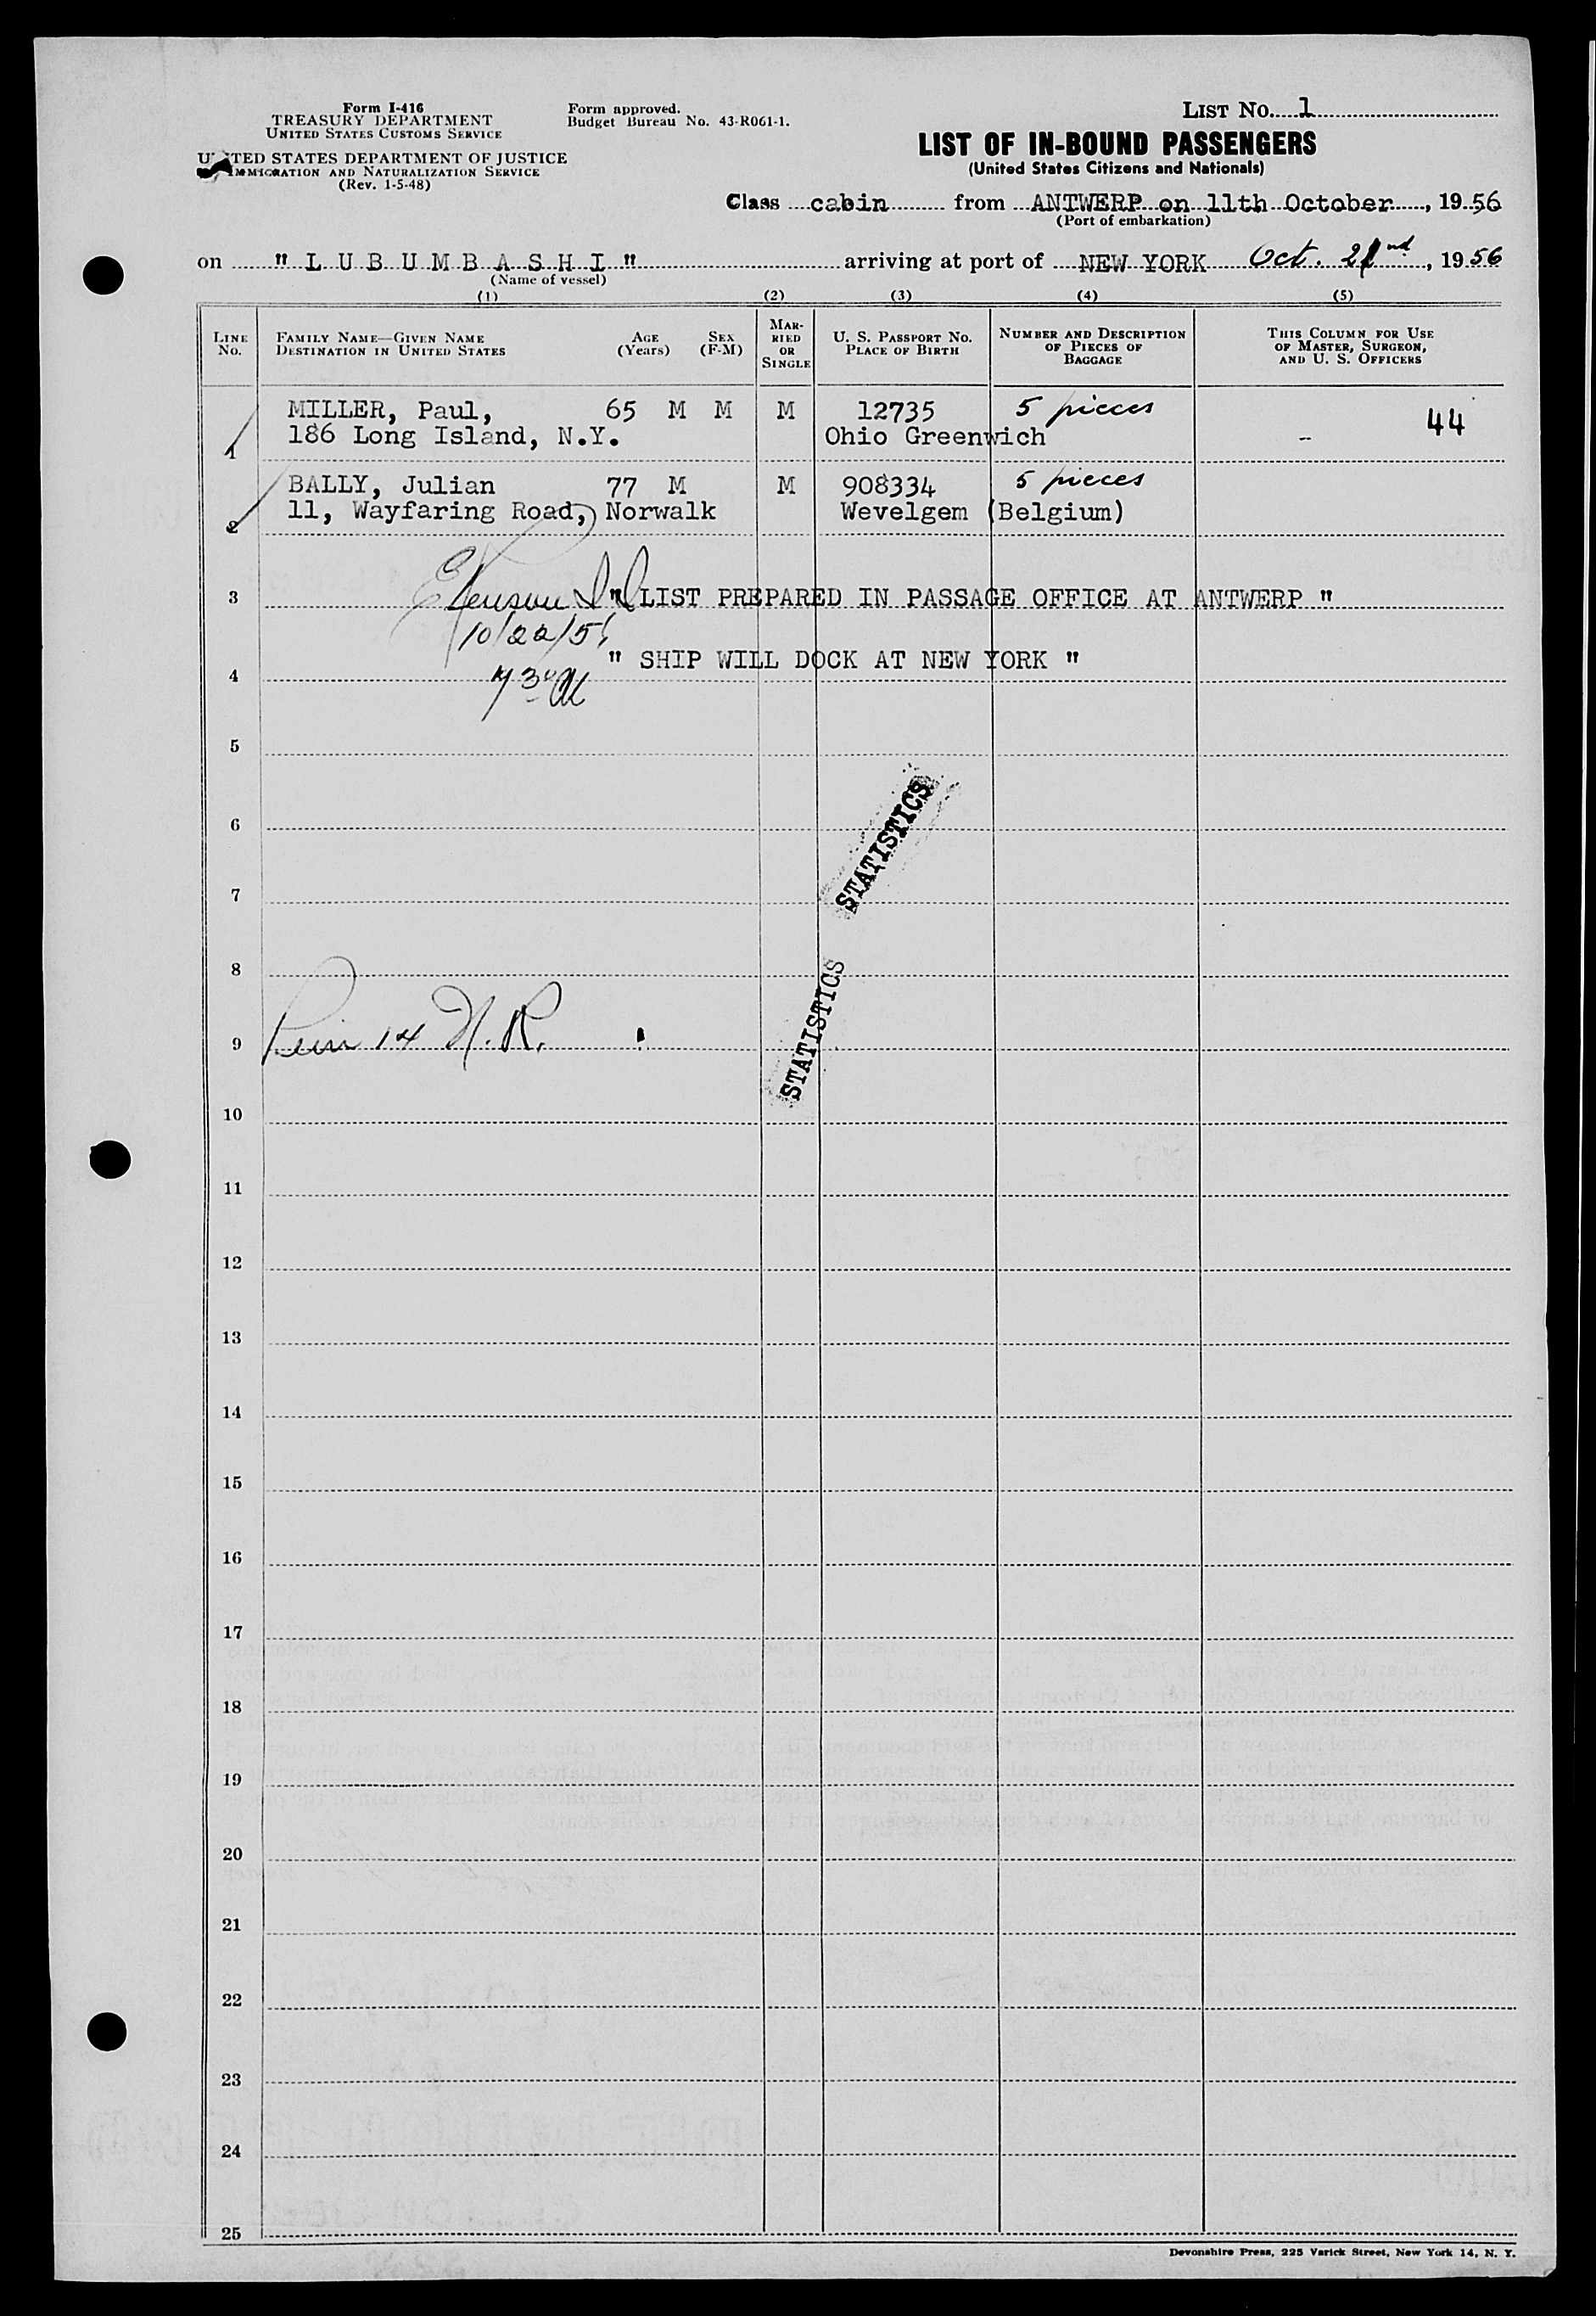 Form I-416
TREASURY DEPARTMENT
UNITED STATES CUSTOMS SERVICE
UNITED STATES DEPARTMENT OF JUSTICE
IMMIGRATION AND NATURALIZATION SERVICE
(Rev. 1-5-48)
Form approved.
Budget Bureau No. 43-R061-1.
LIST No. 1
LIST OF IN-BOUND PASSENGERS
(United States Citizens and Nationals)
Class cabin from ANTWERP on 11th October, 1956
(Port of embarkation)
on " L U B U M B A S H I " arriving at port of NEW YORK Oct. 22nd, 1956
(Name of vessel)
(1) (2) (3) (4) (5)
LINE No. FAMILY NAME—GIVEN NAME DESTINATION IN UNITED STATES AGE (Years) SEX (F-M) MARRIED OR SINGLE U. S. PASSPORT No. PLACE OF BIRTH NUMBER AND DESCRIPTION OF PIECES OF BAGGAGE THIS COLUMN FOR USE OF MASTER, SURGEON, AND U. S. OFFICERS
MILLER, Paul, 65 M M M 12735 5 pieces 44
1 186 Long Island, N.Y. Ohio Greenwich --
BALLY, Julian 77 M M 908334 5 pieces
2 11, Wayfaring Road, Norwalk Wevelgem (Belgium)
3 " LIST PREPARED IN PASSAGE OFFICE AT ANTWERP "
10/22/56
" SHIP WILL DOCK AT NEW YORK "
4
5
6
STATISTICS
7
8
9 14 N.R.
STATISTICS
10
11
12
13
14
15
16
17
18
19
20
21
22
23
24
25
Devonshire Press, 225 Varick Street, New York 14, N. Y.